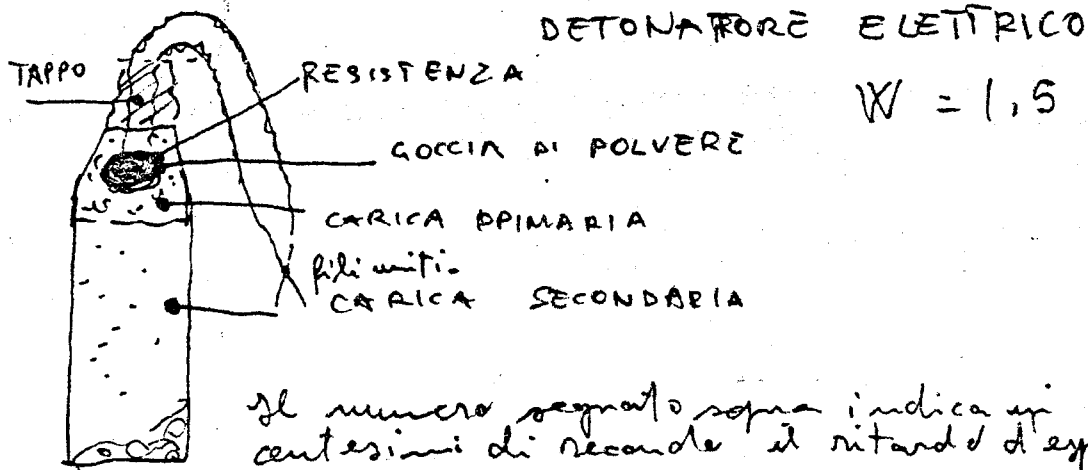 DETONATRORE ELETTRICO
W = 1,5
TAPPO
RESISTENZA
GOCCIA DI POLVERE
CARICA PPIMARIA
fili uniti.
CARICA SECONDARIA
Il numero segnato sopra indica in
centesimi di secondo il ritardo d'esp